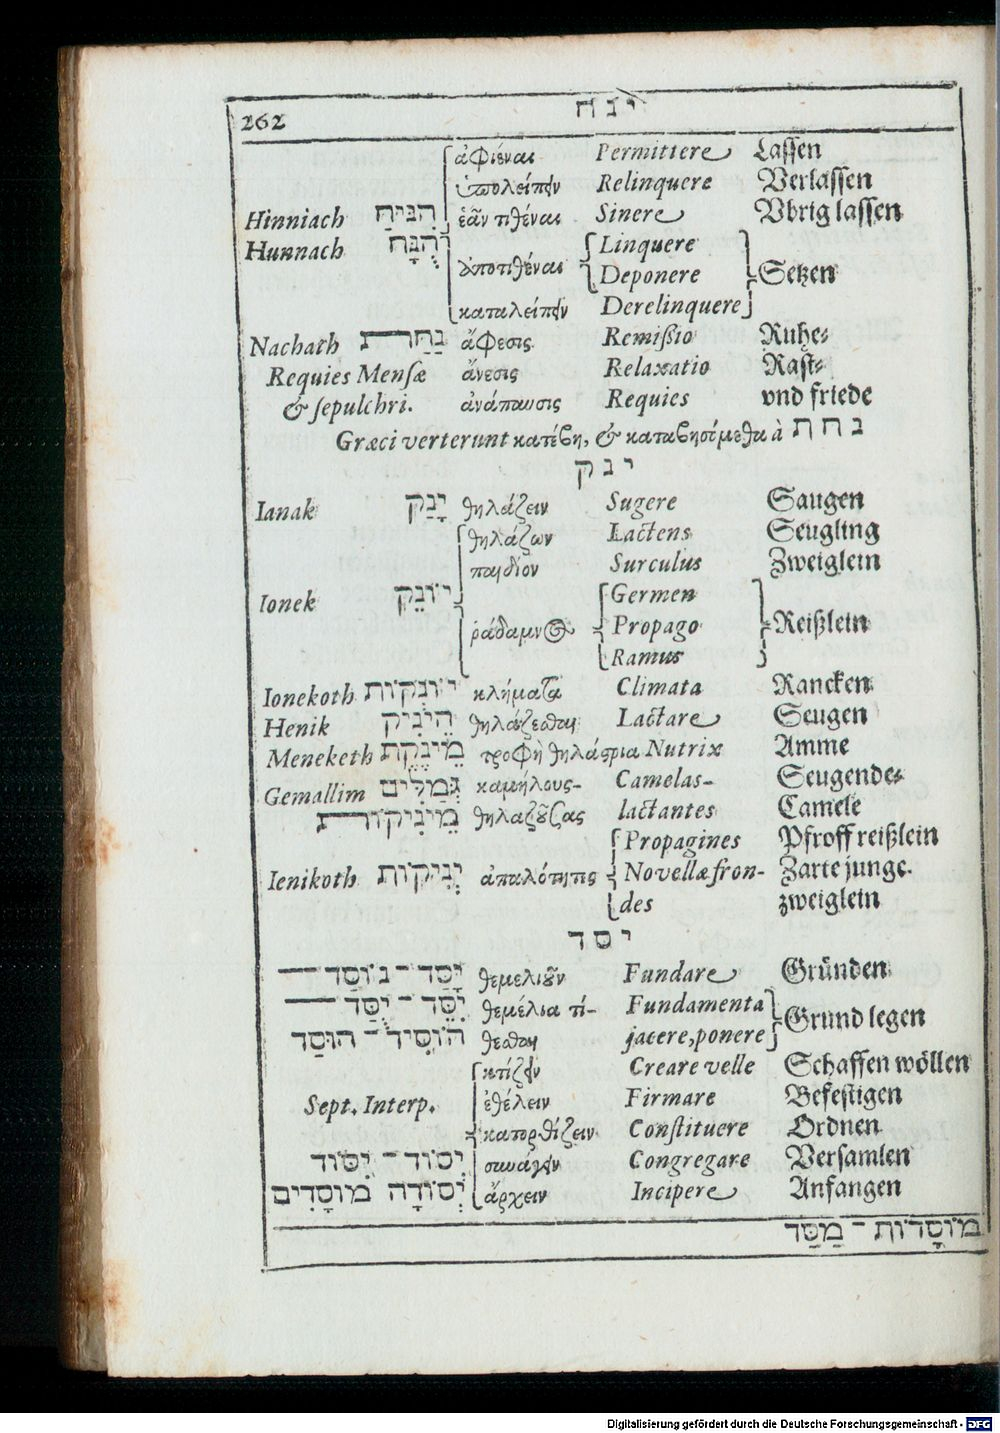 262 ינח
ἀφιέναι Permittere Lassen
ὑπολείπειν Relinquere Verlassen
Hinniach הִנִּיחַ ἐᾶν τιθέναι Sinere Vbrig lassen
Hunnach הֻנָּח Linquere
ἀποτιθέναι Deponere Setzen
καταλείπειν Derelinquere
Nachath נַחַת ἄφεσις Remißio Ruhe-
Requies Mensæ ἄνεσις Relaxatio Rast-
& sepulchri. ἀνάπαυσις Requies vnd friede
Græci verterunt κατέβη, & καταβησόμεθα à נחת
ינק
Ianak יָנַק θηλάζειν Sugere Saugen
θηλάζων Lactens Seugling
παιδίον Surculus Zweiglein
Ionek יוֹנֵק Germen
ῥάδαμνος Propago Reißlein
Ramus
Ionekoth יוֹנְקוֹת κλήματα Climata Rancken
Henik הֵינִיק θηλάζεσθαι Lactare Seugen
Meneketh מֵינֶקֶת τροφὴ θηλάστρια Nutrix Amme
Gemallim גְּמַלִּים καμήλους- Camelas- Seugende-
מֵינִיקוֹת θηλαζούσας lactantes Camele
Propagines Pfroff reißlein
Ienikoth יְנִיקוֹת ἁπαλότητες Novellæ fron- Zarte junge
des zweiglein
יסד
יָסַד - נוֹסַד θεμελιοῦν Fundare Gründen
יִסֵּד - יֻסַּד θεμέλια τί- Fundamenta Grund legen
הוֹסִיד - הוּסַד θεσθαι jacere, ponere
κτίζειν Creare velle Schaffen wöllen
Sept. Interp. ἐθέλειν Firmare Befestigen
κατορθίζειν Constituere Ordnen
יְסוֹד - יִסּוֹד συνάγειν Congregare Versamlen
יְסוֹדָה מוֹסָדִים ἄρχειν Incipere Anfangen
מוֹסָדוֹת - מַסַּד
Digitalisierung gefördert durch die Deutsche Forschungsgemeinschaft - DFG